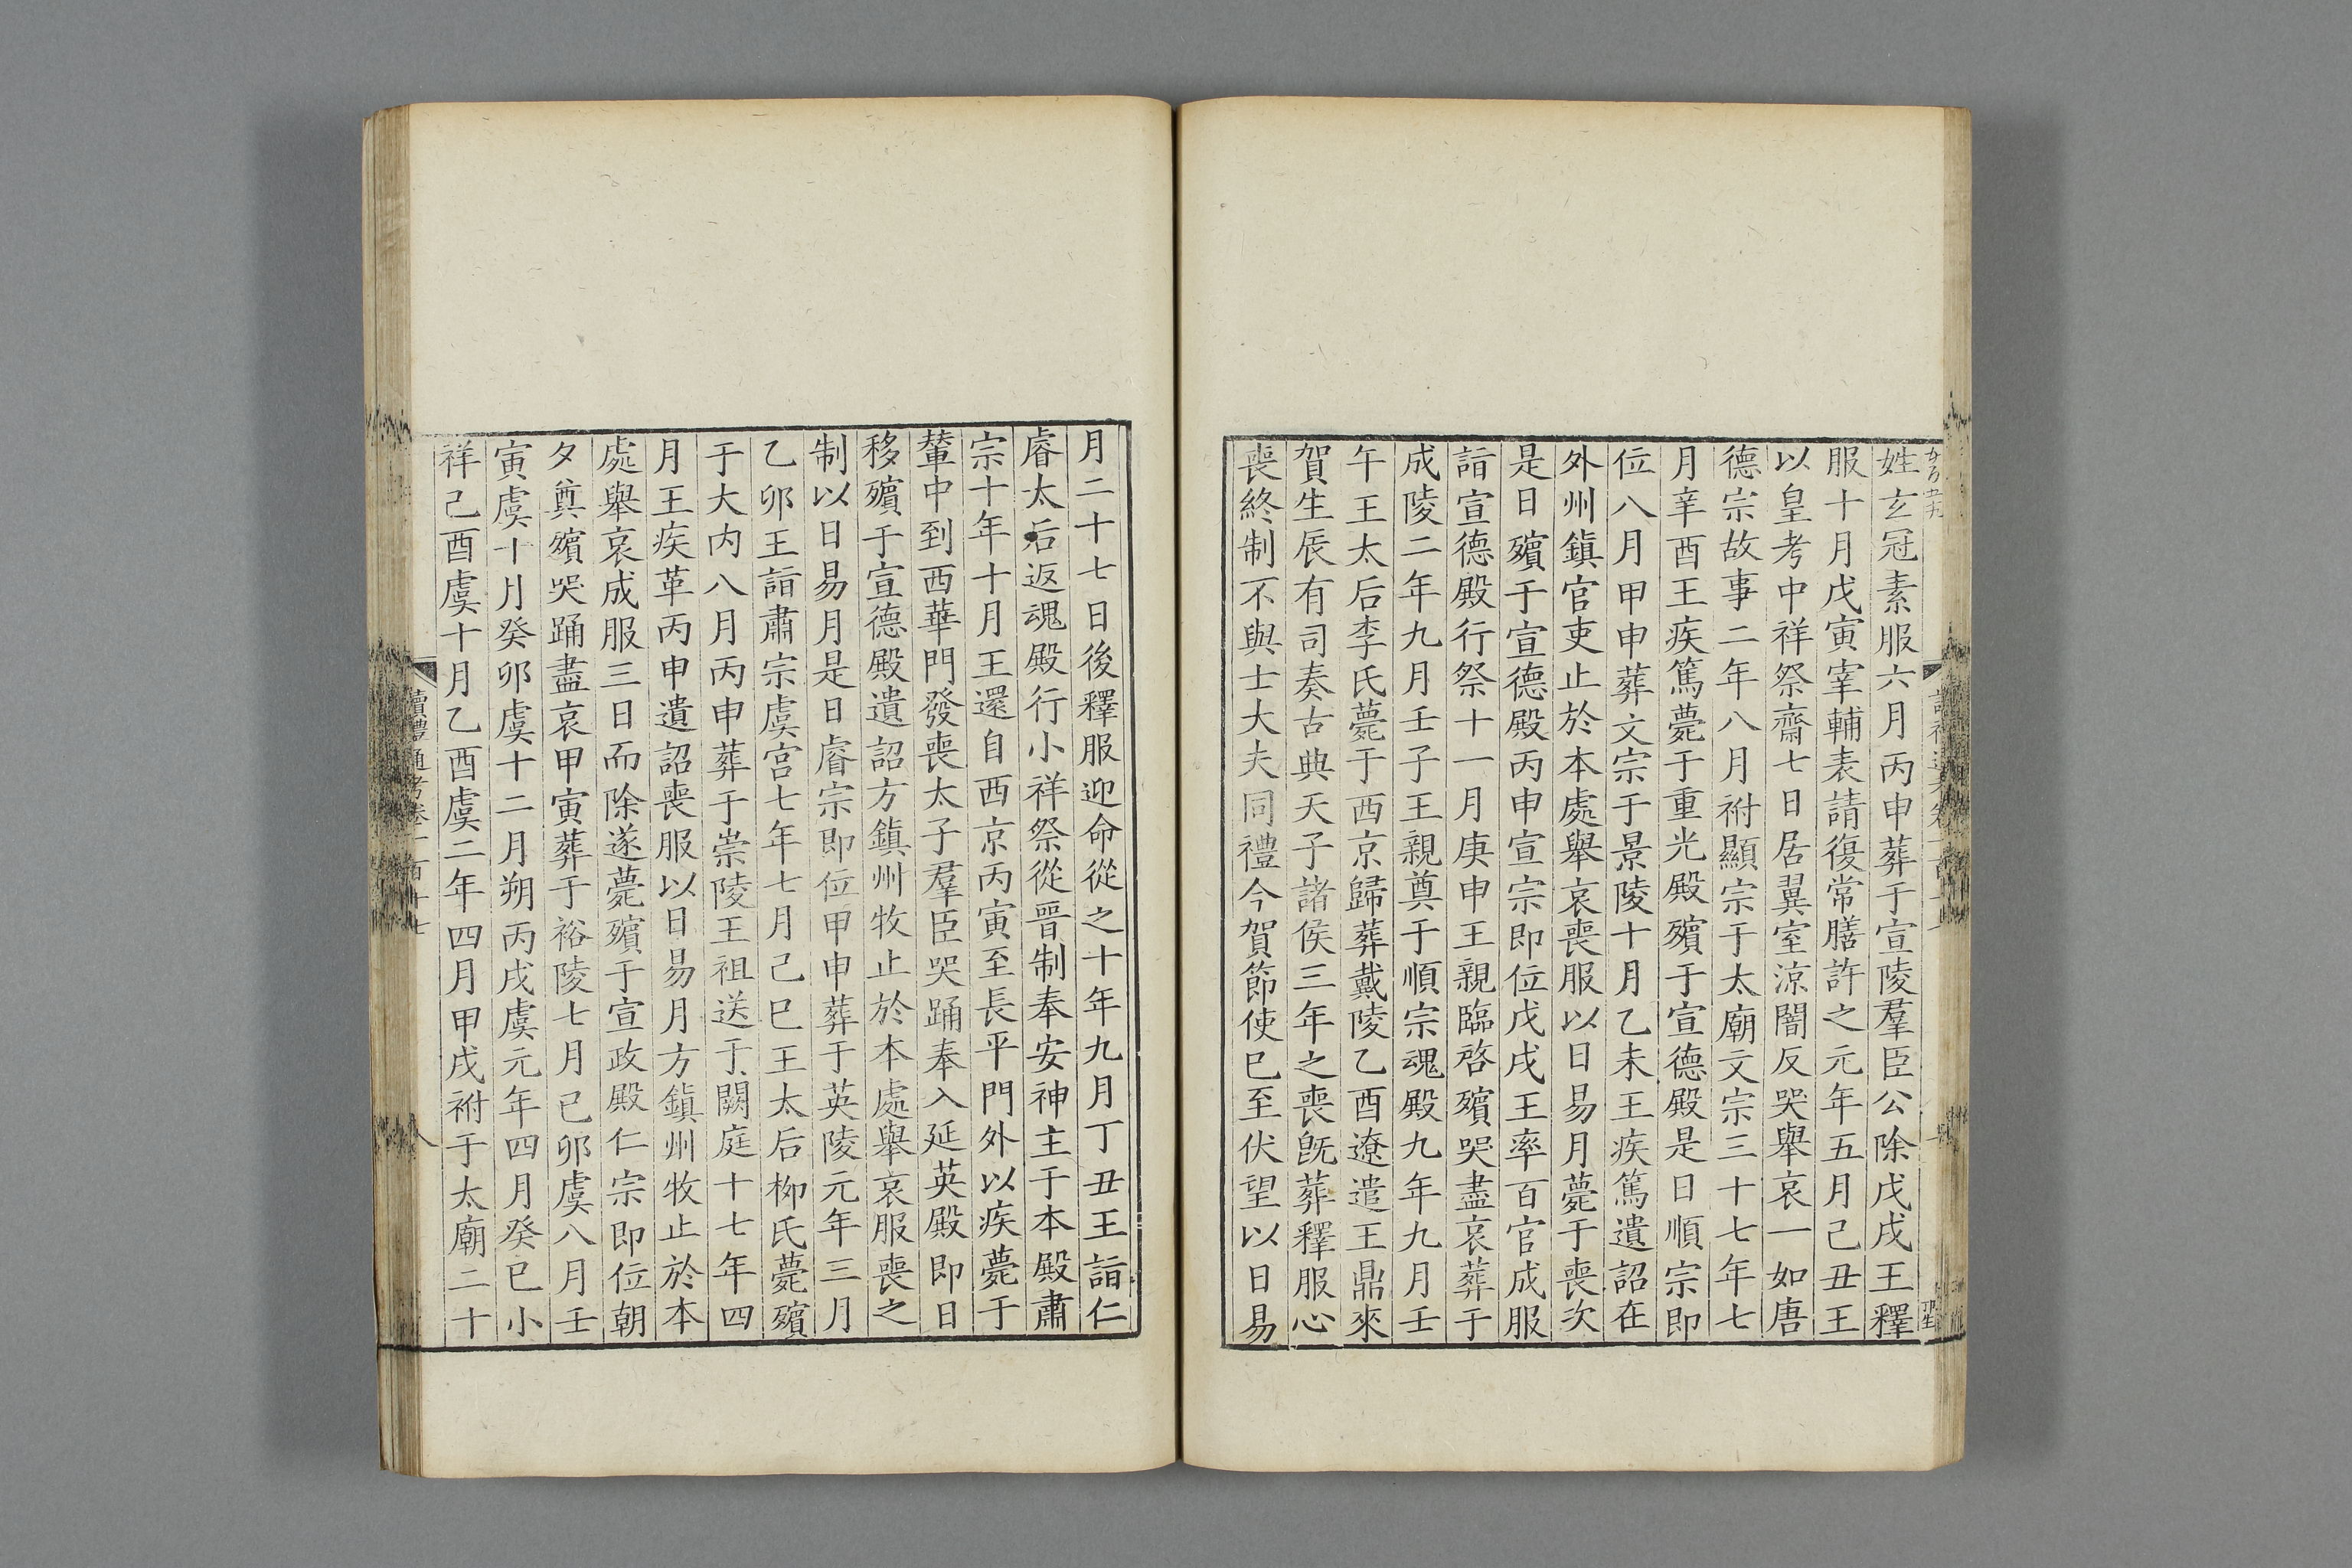 姓玄冠素服六月丙申葬于宣陵羣臣公除戊戌王釋
服十月戊寅宰輔表請復常膳許之元年五月己丑王
以皇考中祥祭齋七日居翼室涼闇反哭舉哀一如唐
德宗故事二年八月祔顯宗于太廟文宗三十七年七
月辛酉王疾篤薨于重光殿殯于宣德殿是日順宗即
位八月甲申葬文宗于景陵十月乙未王疾篤遺詔在
外州鎮官吏止於本處舉哀喪服以日易月薨于喪次
是日殯于宣德殿丙申宣宗即位戊戌王率百官成服
詣宣德殿行祭十一月庚申王親臨啓殯哭盡哀葬于
成陵二年九月壬子王親奠于順宗魂殿九年九月壬
午王太后李氏薨于西京歸葬戴陵乙酉遼遣王鼎來
賀生辰有司奏古典天子諸侯三年之喪既葬釋服心
喪終制不與士大夫同禮今賀節使已至伏望以日易
月二十七日後釋服迎命從之十年九月丁丑王詣仁
睿太后返魂殿行小祥祭從晉制奉安神主于本殿肅
宗十年十月王還自西京丙寅至長平門外以疾薨于
輦中到西華門發喪太子羣臣哭踊奉入延英殿即日
移殯于宣德殿遺詔方鎮州牧止於本處舉哀服喪之
制以日易月是日睿宗即位甲申葬于英陵元年三月
乙卯王詣肅宗虞宮七年七月己巳王太后柳氏薨殯
于大內八月丙申葬于崇陵王祖送于闕庭十七年四
月王疾革丙申遺詔喪服以日易月方鎮州牧止於本
處舉哀成服三日而除遂薨殯于宣政殿仁宗即位朝
夕奠殯哭踊盡哀甲寅葬于裕陵七月己卯虞八月壬
寅虞十月癸卯虞十二月朔丙戌虞元年四月癸巳小
祥己酉虞十月乙酉虞二年四月甲戌祔于太廟二十
讀禮通考卷一百十七
八